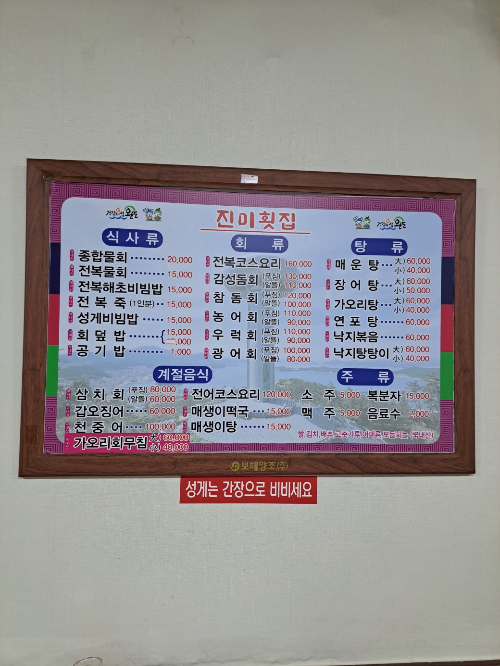 진미횟집
식 사 류
종합물회 ········ 20,000
전복물회 ········ 15,000
전복해초비빔밥 ····· 15,000
전 복 죽 (1인분) ·· 15,000
성게비빔밥 ······ 15,000
회 덮 밥 ···· 15,000
공 기 밥 ········ 1,000
회 류
전복코스요리 160,000
감성돔회 (푸짐) 130,000
(알뜰) 110,000
참 돔 회 (푸짐) 120,000
(알뜰) 100,000
농 어 회 (푸짐) 110,000
(알뜰) 90,000
우 럭 회 (푸짐) 110,000
(알뜰) 90,000
광 어 회 (푸짐) 100,000
(알뜰) 80,000
탕 류
매 운 탕 ··· 大) 60,000
小) 40,000
장 어 탕 ··· 大) 60,000
小) 50,000
가오리탕 ··· 大) 60,000
小) 40,000
연 포 탕 ······ 60,000
낙지볶음 ······ 60,000
낙지탕탕이 大) 80,000
小) 40,000
계절음식
삼 치 회 (푸짐) 80,000
(알뜰) 60,000
갑오징어 ······ 60,000
천 중 어 ···· 100,000
가오리회무침 大) 60,000
小) 40,000
전어코스요리 120,000
매생이떡국 ···· 15,000
매생이탕 ····· 15,000
주 류
소 주 5,000 복분자 15,000
맥 주 5,000 음료수 2,000
보해양조(주)
성게는 간장으로 비비세요